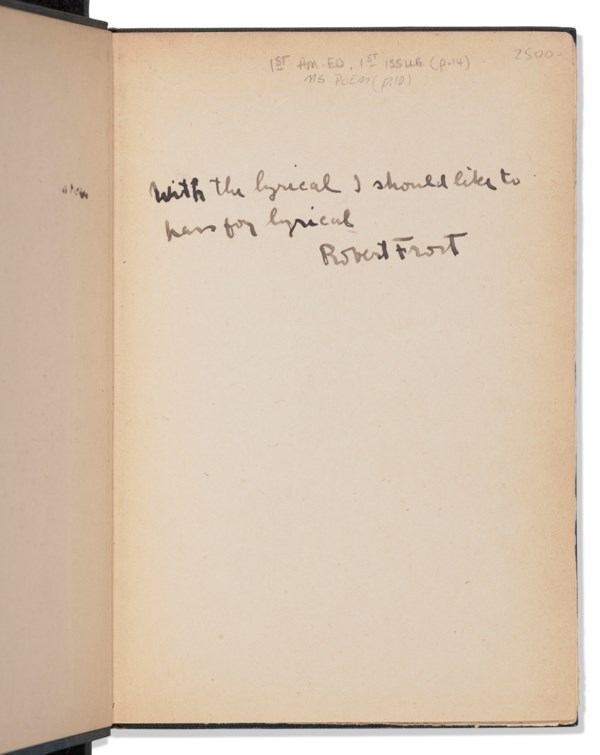 1ST AM. ED, 1ST ISSUE (p.14)
2500-
MS POEM (p.10)
With the lyrical I should like to
pass for lyrical
Robert Frost